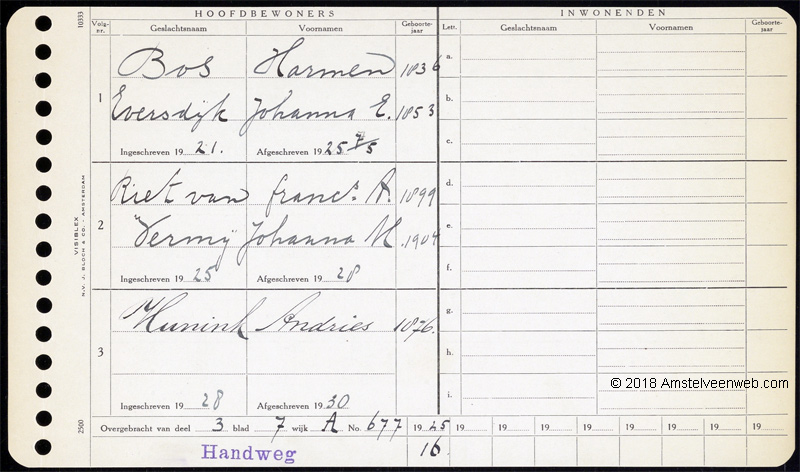 HOOFDBEWONERS INWONENDEN
Volg-nr. Geslachtsnaam Voornamen Geboorte-jaar Lett. Geslachtsnaam Voornamen Geboorte-jaar
10333
1
Bos Harmen 1836
Eversdijk Johanna E. 1853
Ingeschreven 19 21. Afgeschreven 19 25 7/5
2
Riet van Franc. A. 1899
Vermij Johanna M. 1904
Ingeschreven 19 25 Afgeschreven 19 28
3
Hunink Andries 1876.
Ingeschreven 19 28 Afgeschreven 19 30
a.
b.
c.
d.
e.
f.
g.
h.
i.
VISIBLEX
N.V. J. BLOCH & CO. AMSTERDAM
2500
Overgebracht van deel 3 blad 7 wijk A No. 677 19 25 19 19 19 19 19 19 19 19
Handweg 16.
© 2018 Amstelveenweb.com